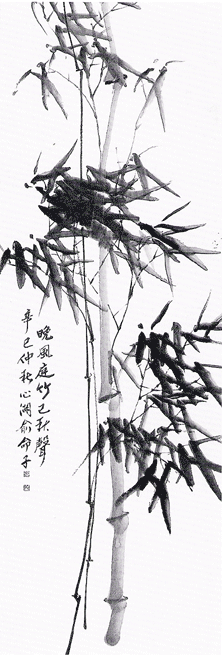 晚風庭竹已秋聲
辛巳仲秋心湖俞命子